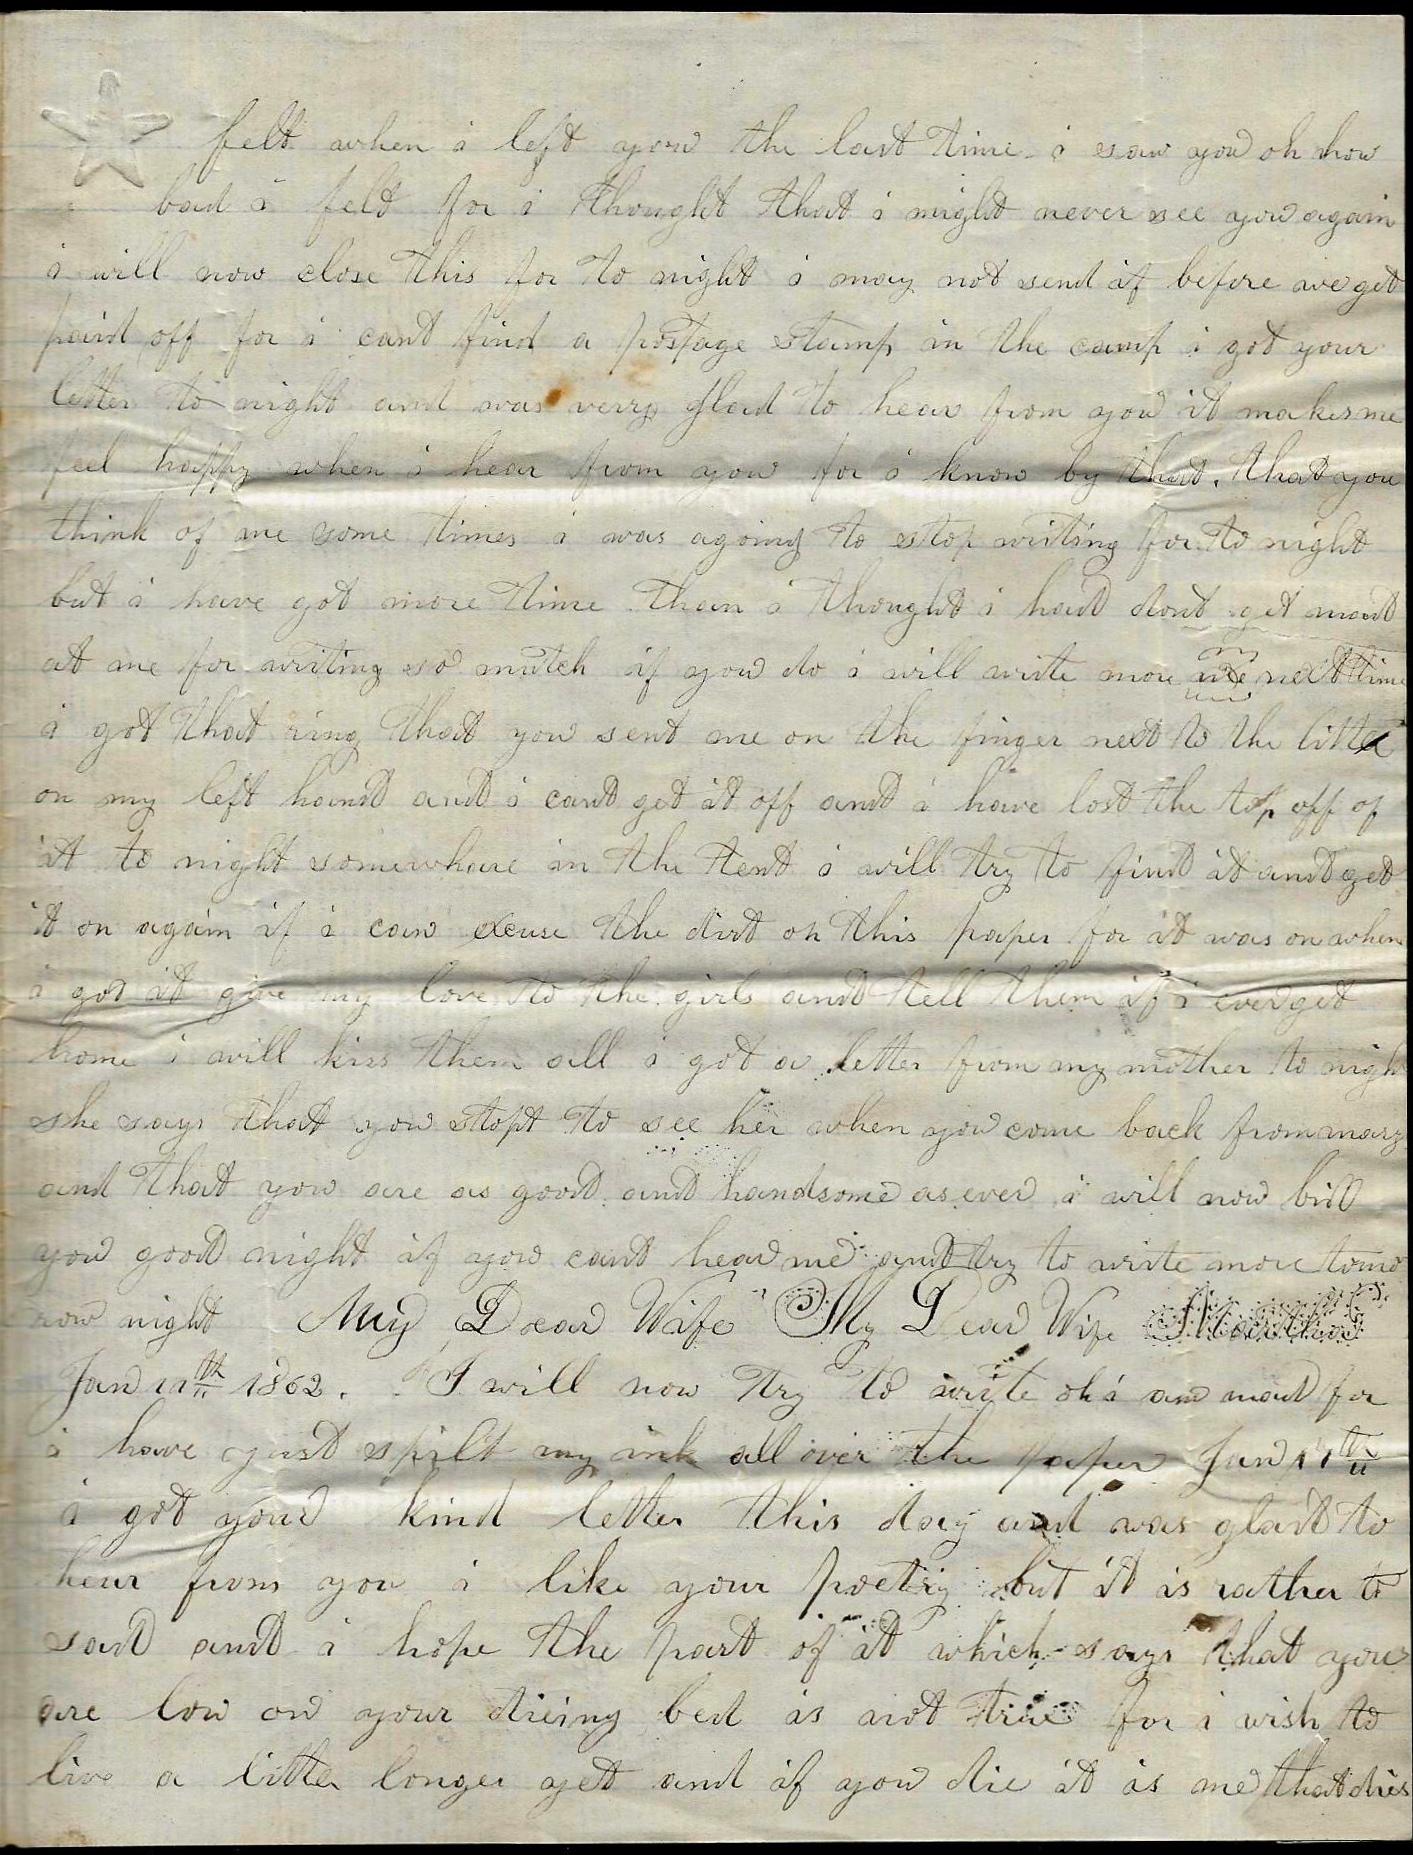 felt when i left you the last time i saw you oh how
bad i felt for i thought that i might never see you again
i will now close this for to night i may not send it before we get
paid off for i cant find a postage stamp in the camp i got your
letter to night and was verry glad to hear from you it makes me
feel happy when i hear from you for i know by that. that you
think of me some times i was agoing to stop writing for to night
but i have got more time than i thought i had dont get mad
at me for writing so mutch if you do i will write more next time
i got that ring that you sent me on the finger next to the little
on my left hand and i cant get it off and i have lost the top off of
it to night somewhare in the tent i will try to find it and get
it on again if i can excuse the dirt on this paper for it was on when
i got it give my love to the girls and tell them if i ever get
home i will kiss them all i got a letter from my mother to nigh
she says that you stopt to see her when you come back from mary
and that you are as good and handsome as ever i will now bid
you good night if you cant hear me and try to write more tomo
row night My Dear Wife My Dear Wife Martha
Jan 11th 1862. I will now try to write oh i am mad for
i have just spilt my ink all over the paper Jan 11th
i got your kind letter this day and was glad to
hear from you i like your poetry but it is rather to
sad and i hope the part of it which says that you
are low on your dieing bed is not true for i wish to
live a little longer yet and if you die it is me that dies